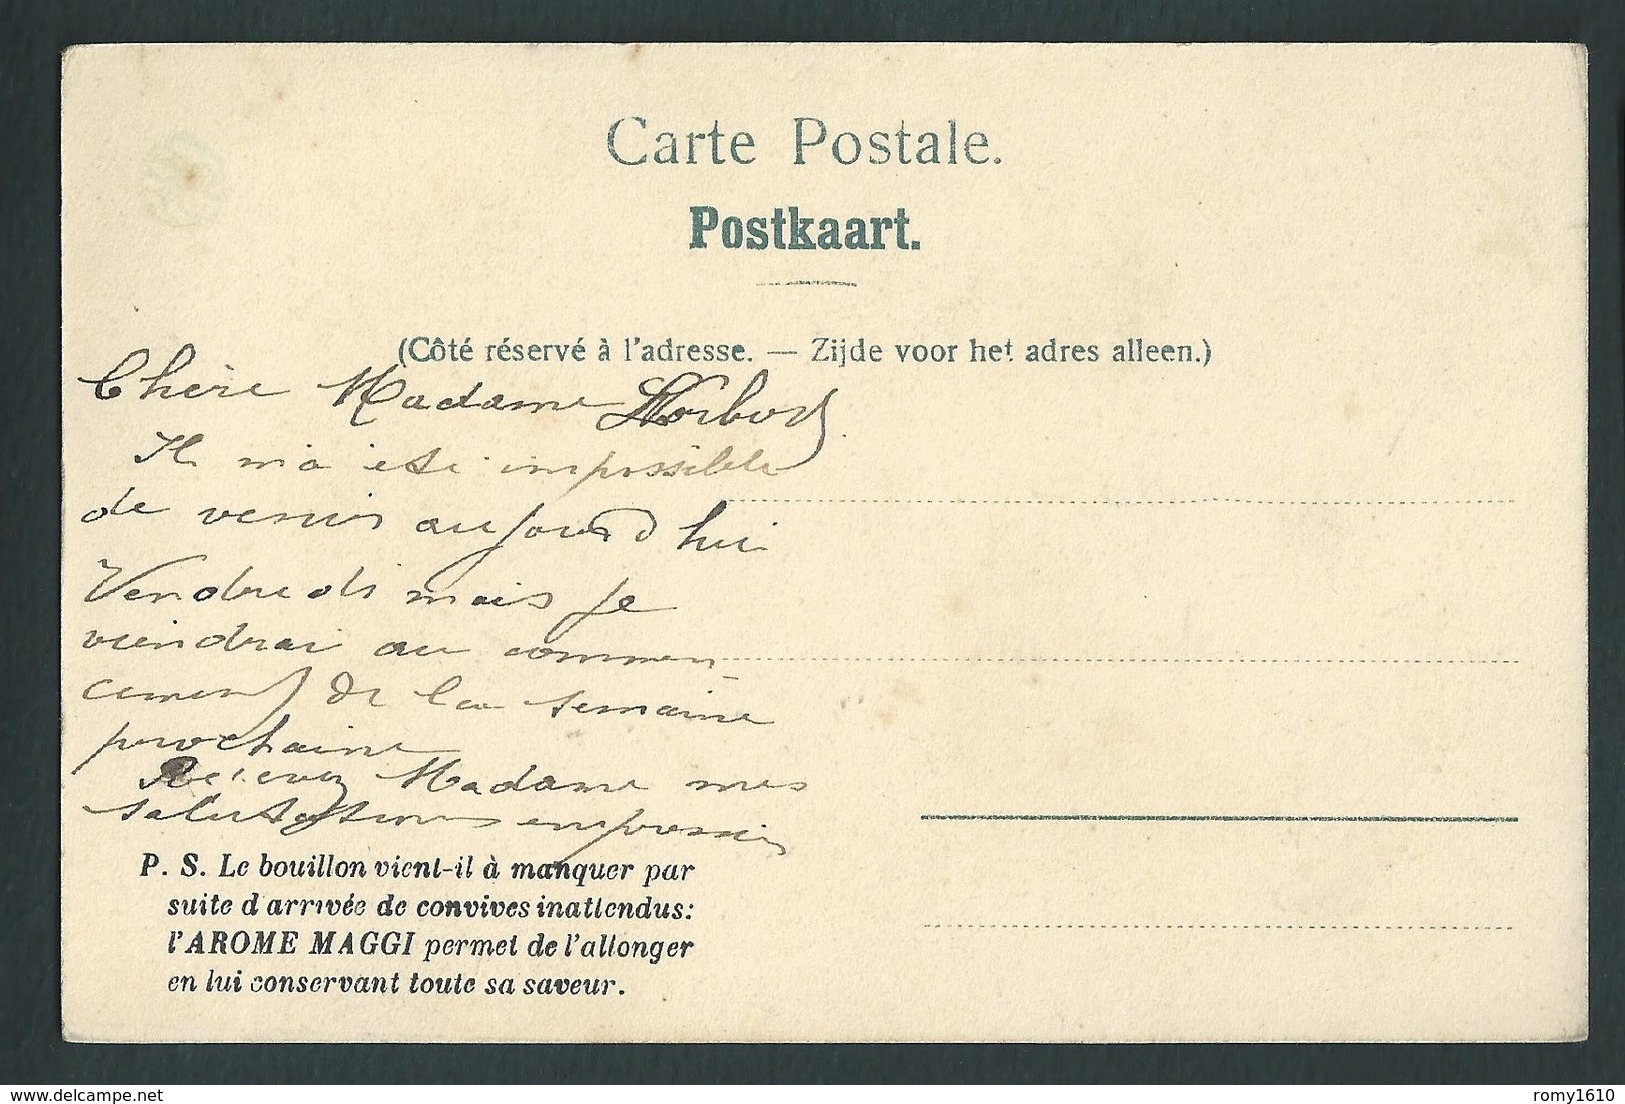 Carte Postale.
Postkaart.
(Côté réservé à l'adresse. — Zijde voor het adres alleen.)
Chère Madame
Il m'a été impossible
de venir aujourd'hui
Vendredi mais je
viendrai au commen
cement de la semaine
prochaine
Recevez Madame mes
salutations empressées
P. S. Le bouillon vient-il à manquer par
suite d'arrivée de convives inattendus:
l'AROME MAGGI permet de l'allonger
en lui conservant toute sa saveur.
delcampe.net
romy1610